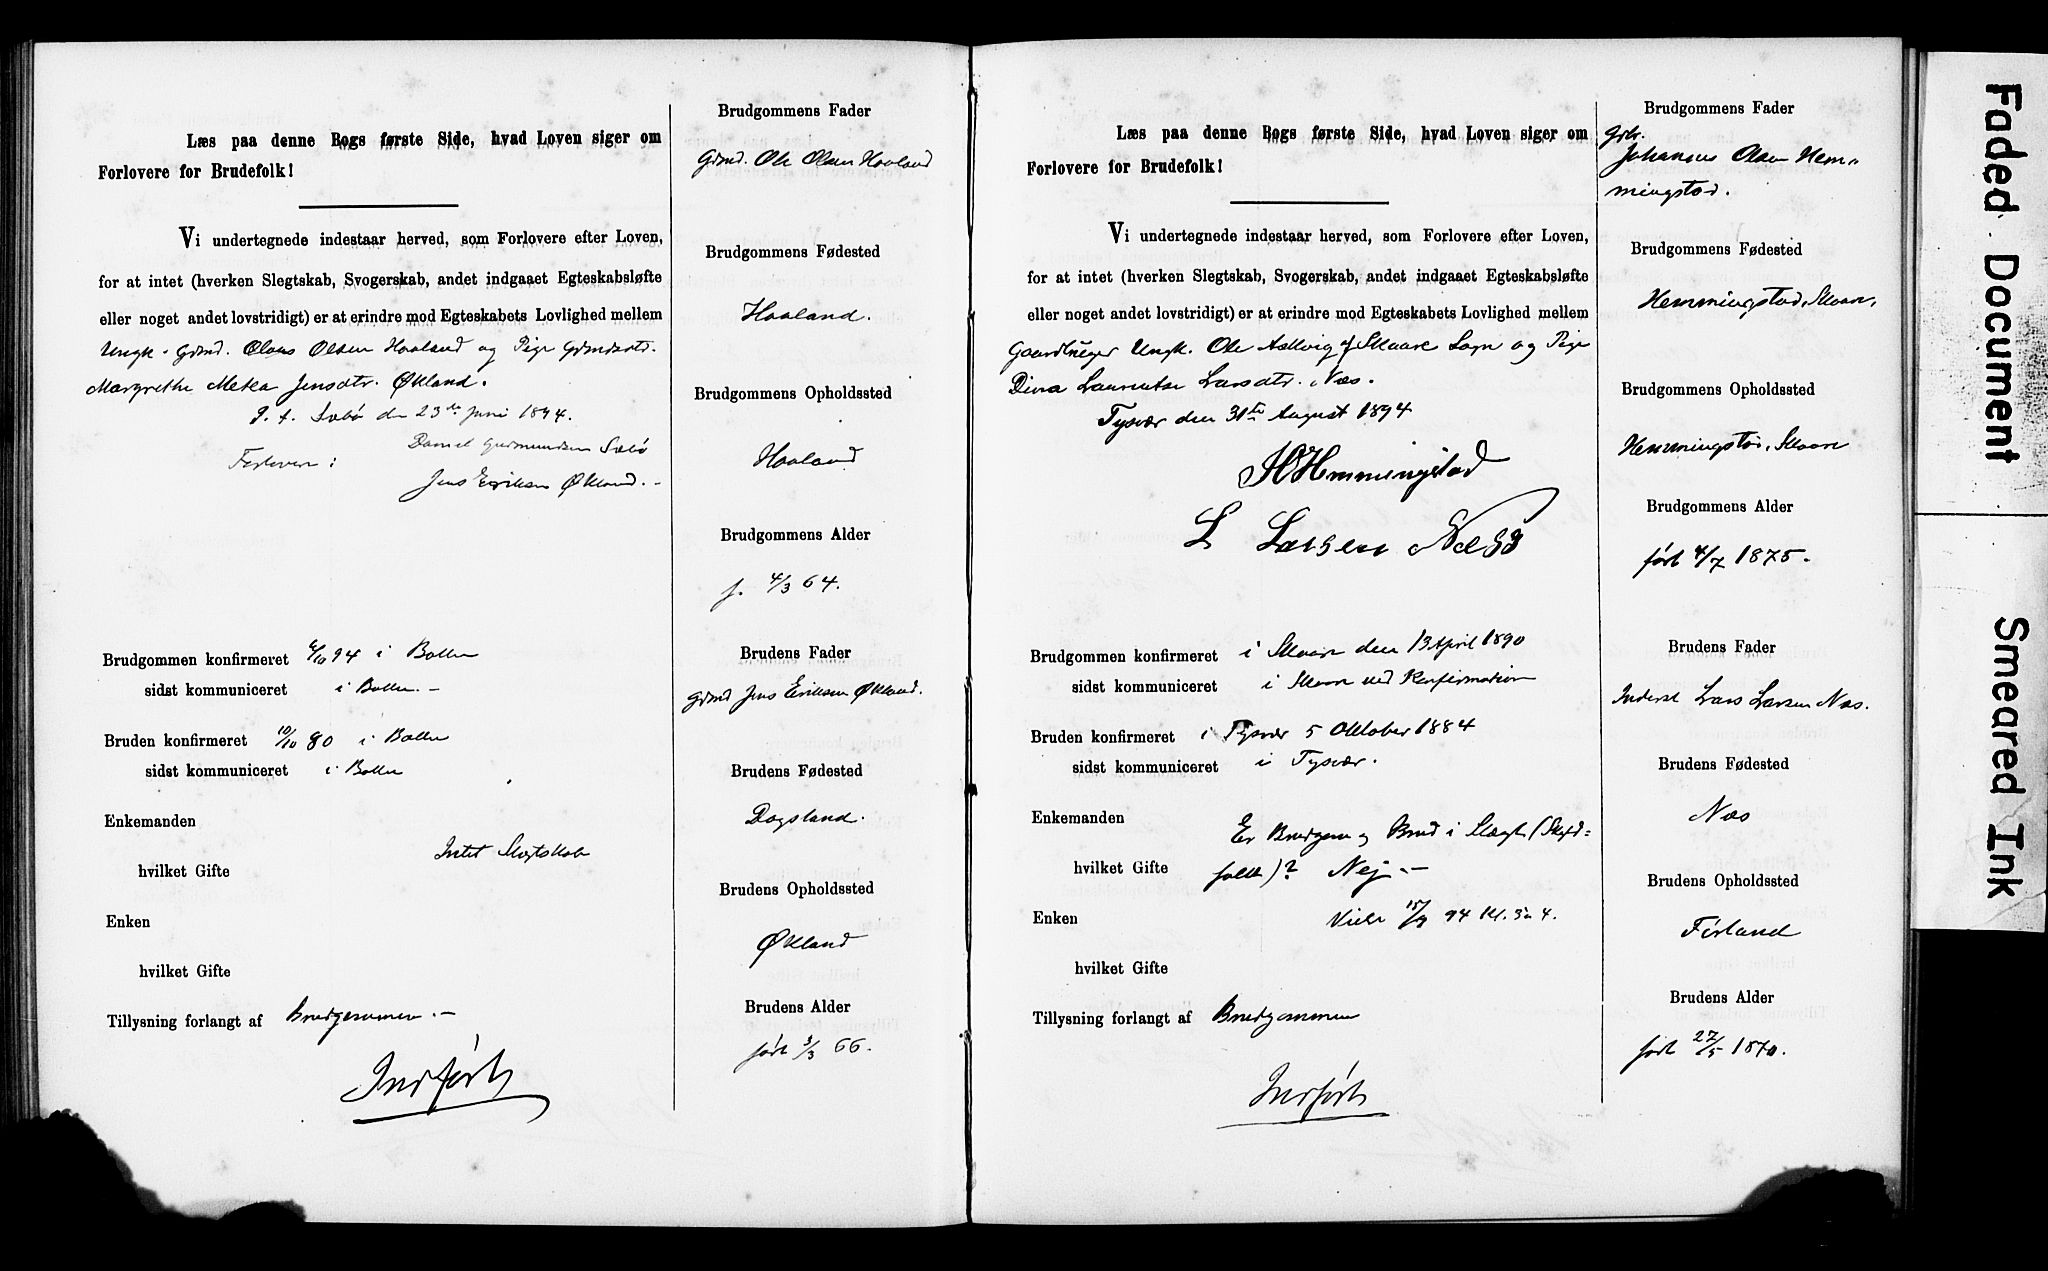 Læs paa denne Bogs første Side, hvad Loven siger om
Forlovere for Brudefolk!
Vi undertegnede indestaar herved, som Forlovere efter Loven,
for at intet (hverken Slegtskab, Svogerskab, andet indgaaet Egteskabsløfte
eller noget andet lovstridigt) er at erindre mod Egteskabets Lovlighed mellem
Ungk. Grmd. Claus Olsen Haaland og Pige Grmdsdt.
Margrethe Metea Jensdtr. Økland.
P. t. Sæbø den 23de Juni 1894.
Forlovere: Daniel Gudmundsen Sæbø
Jens Eriksen Økland. -
Brudgommen konfirmeret 6/10 94 i Bokn
sidst kommuniceret i Bokn. -
Bruden konfirmeret 10/10 80 i Bokn
sidst kommuniceret i Bokn
Enkemanden
Intet Slægtskab
hvilket Gifte
Enken
hvilket Gifte
Tillysning forlangt af Brudgommen. -
Indført
Brudgommens Fader
Grmd. Ole Olsen Haaland
Brudgommens Fødested
Haaland.
Brudgommens Opholdssted
Haaland
Brudgommens Alder
f. 4/3 64.
Brudens Fader
Grmd Jens Eriksen Økland.
Brudens Fødested
Dagsland.
Brudens Opholdssted
Økland
Brudens Alder
født 3/3 66.
Læs paa denne Bogs første Side, hvad Loven siger om
Forlovere for Brudefolk!
Vi undertegnede indestaar herved, som Forlovere efter Loven,
for at intet (hverken Slegtskab, Svogerskab, andet indgaaet Egteskabsløfte
eller noget andet lovstridigt) er at erindre mod Egteskabets Lovlighed mellem
Gaardbruger Ungk. Ole Aakvig af Skaare Sogn og Pige
Dina Laurentse Larsdtr. Næs.
Tysvær den 31te August 1894
H Hemmingstad
L Larsen Næss
Brudgommen konfirmeret i Skaare den 13 April 1890
sidst kommuniceret i Skaare ved Konfirmation
Bruden konfirmeret i Tysvær 5 Oktober 1884
sidst kommuniceret i Tysvær.
Enkemanden Er Brudgom og Brud i Slægt (Skyld=
hvilket Gifte folk)? Nej. -
Enken Viele 15/9 94 Kl. 3 a 4.
hvilket Gifte
Tillysning forlangt af Brudgommen
Indført
Brudgommens Fader
Gbr.
Johannes Olsen Hem-
mingstad.
Brudgommens Fødested
Hemmingstad, Skaare,
Brudgommens Opholdssted
Hemmingstad, Skaare
Brudgommens Alder
født 4/7 1875.
Brudens Fader
Inderst Lars Larsen Næs.
Brudens Fødested
Næs
Brudens Opholdssted
Førland
Brudens Alder
født 22/5 1870.
Faded Document
Smeared Ink